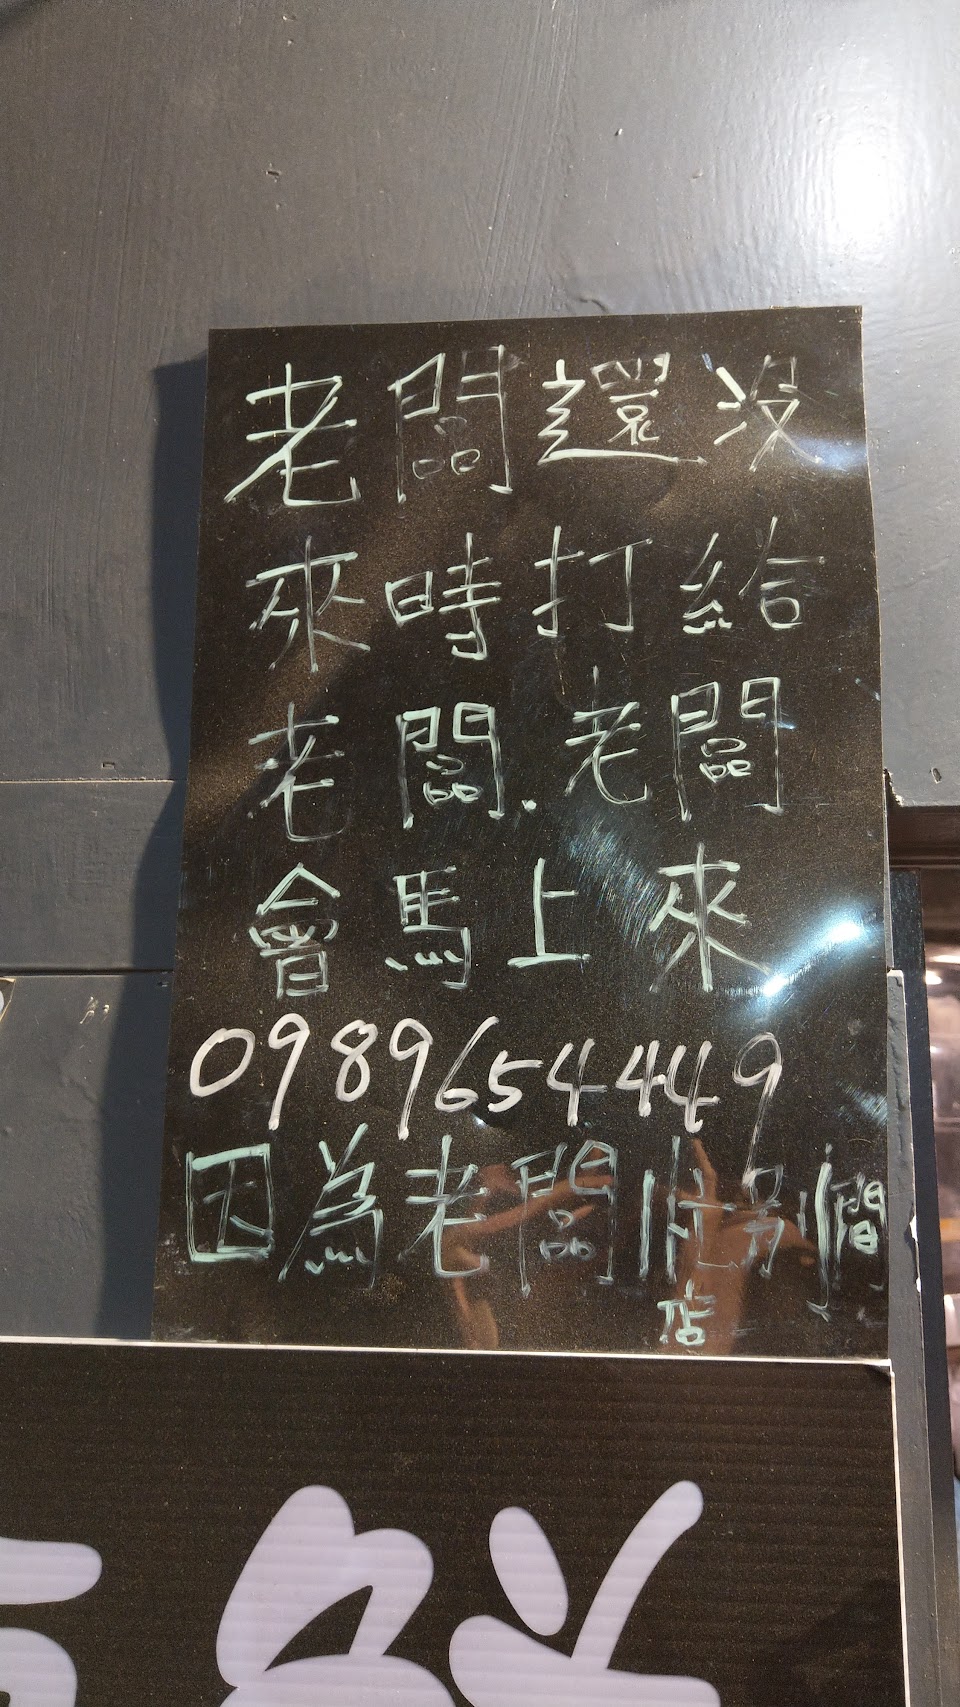 老闆還沒
來時打給
老闆.老闆
會馬上來
0989654449
因為老闆忙別間
店
鮮